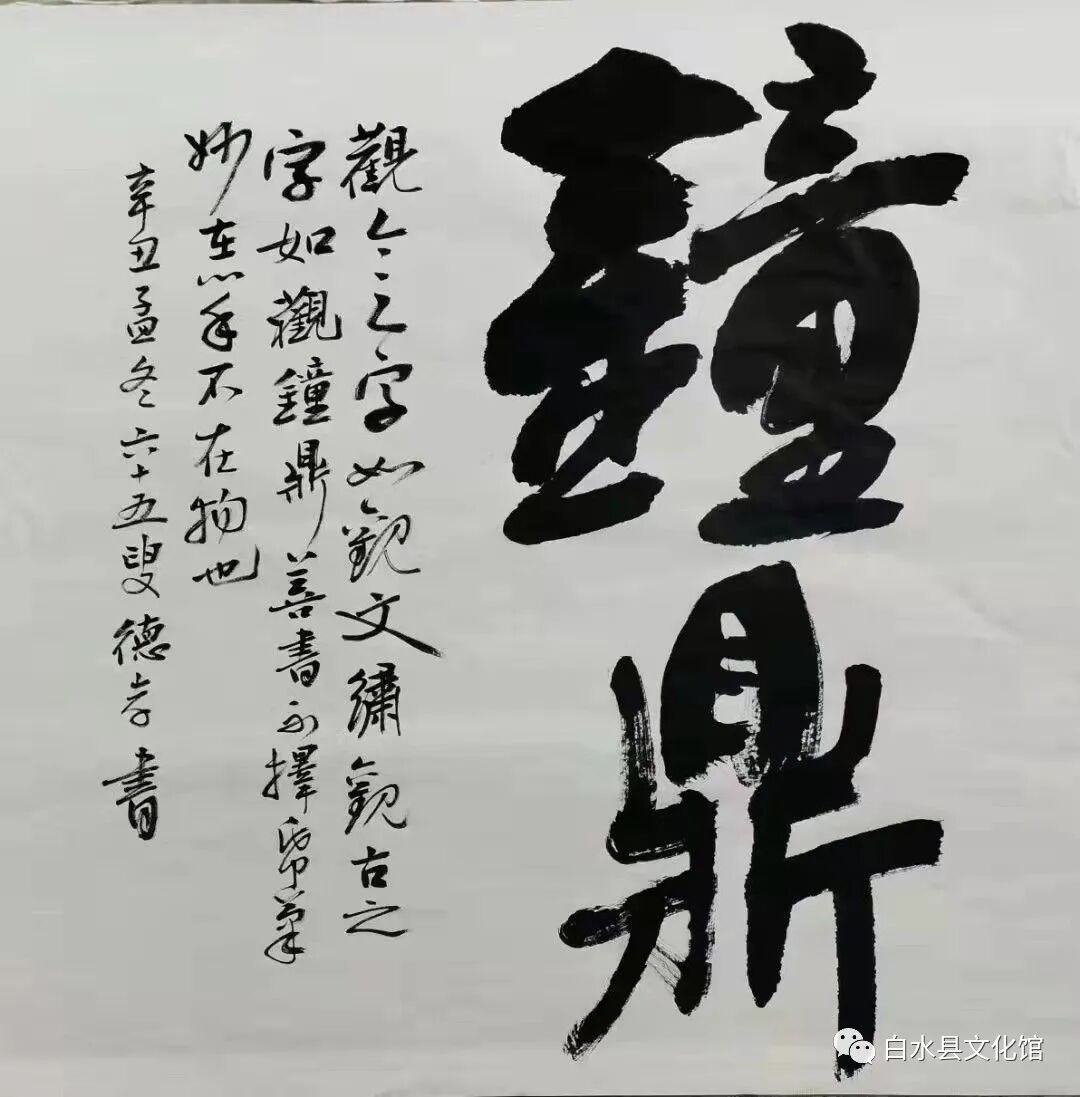 鐘鼎
觀今之字如觀文繡觀古之
字如觀鐘鼎善書不擇帋筆
妙在心手不在物也
辛丑孟冬六十五叟德書
白水县文化馆